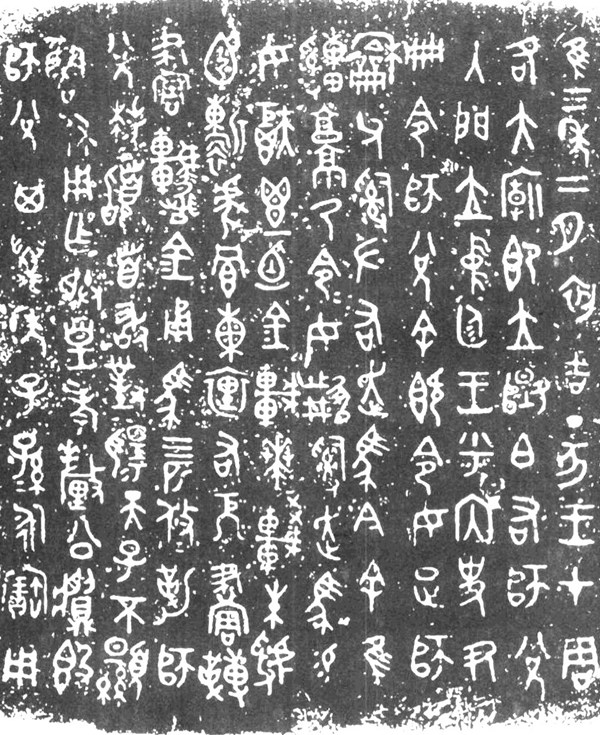 隹三年二月初吉丁亥王才周
各大廟即立䚄白右師兌
入門立中廷王乎內史尹
冊令師兌余既令女疋師
龢父𤔲左右走馬今余隹
𤕌𩫨乃令令女𩁹𤔲走馬易
女秬鬯一卣金車𠦪較朱虢
靳虎冟熏裏右厄畫轉
畫金甬馬四匹攸勒師
兌拜𩒨首敢對揚天子不顯
魯休用乍朕皇考釐公𪔉簋
師兌其萬年子子孫孫永寶用